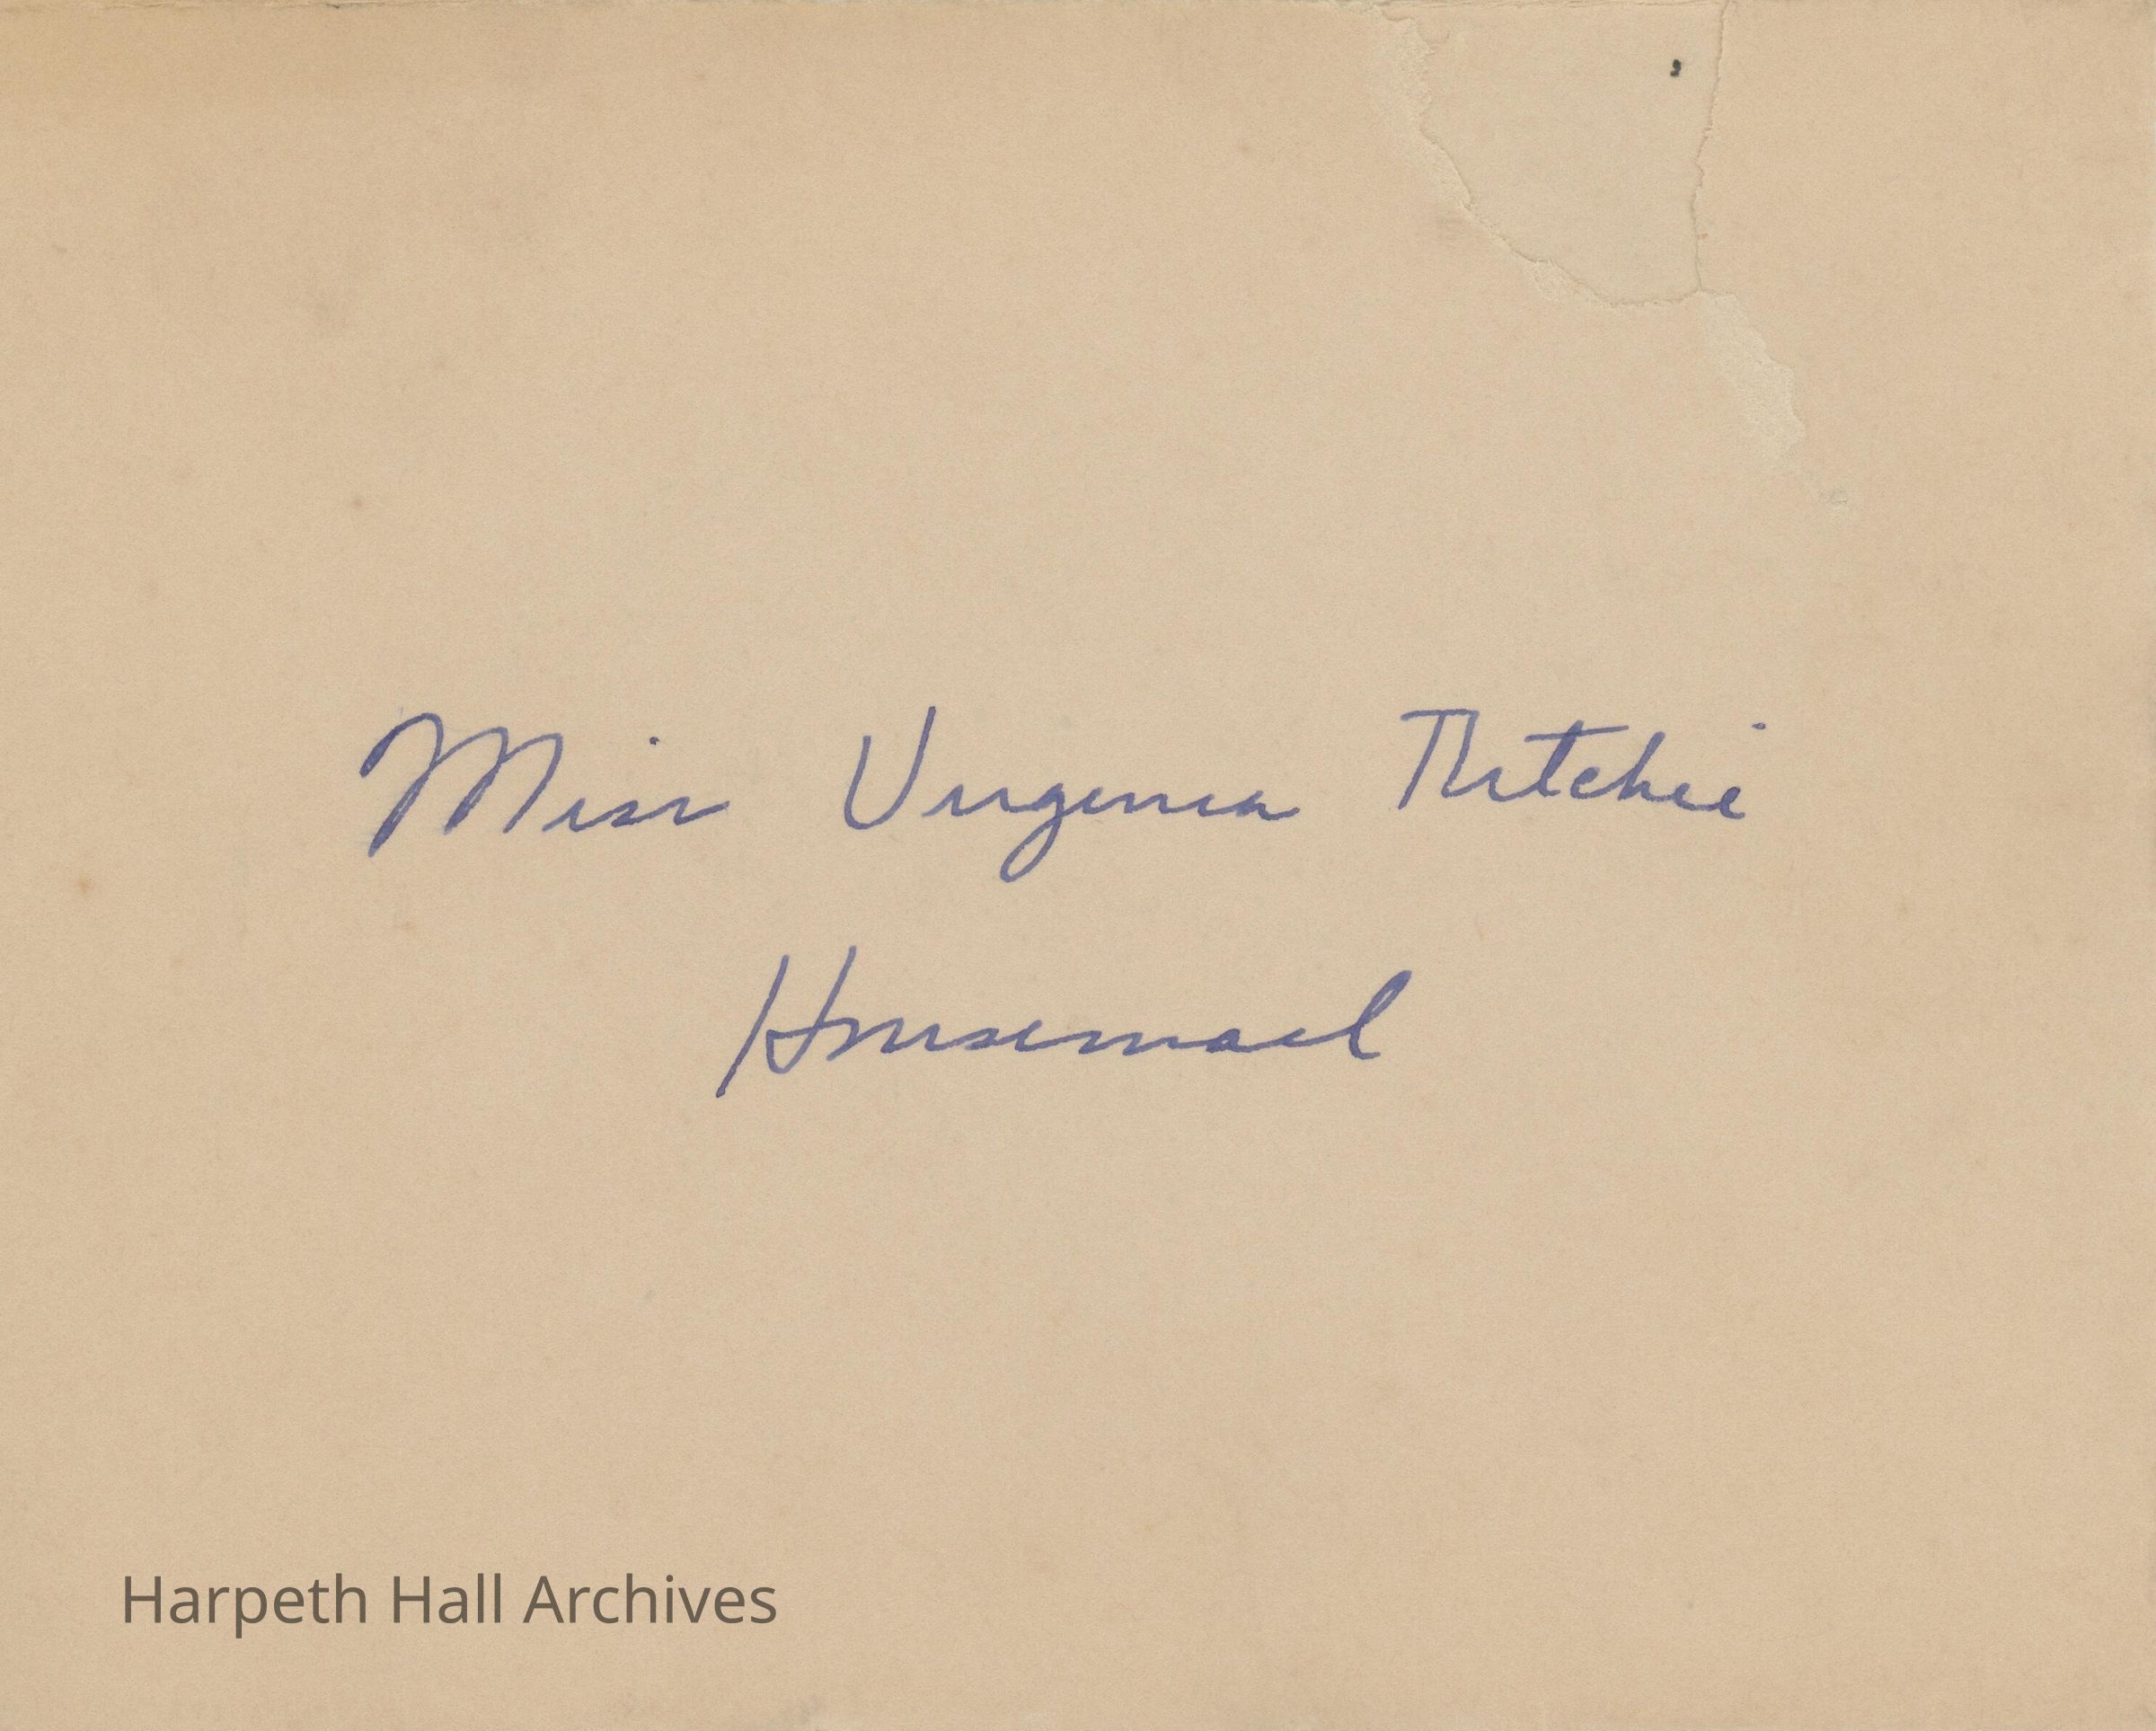 Miss Virginia Ritchie
Housemaid
Harpeth Hall Archives